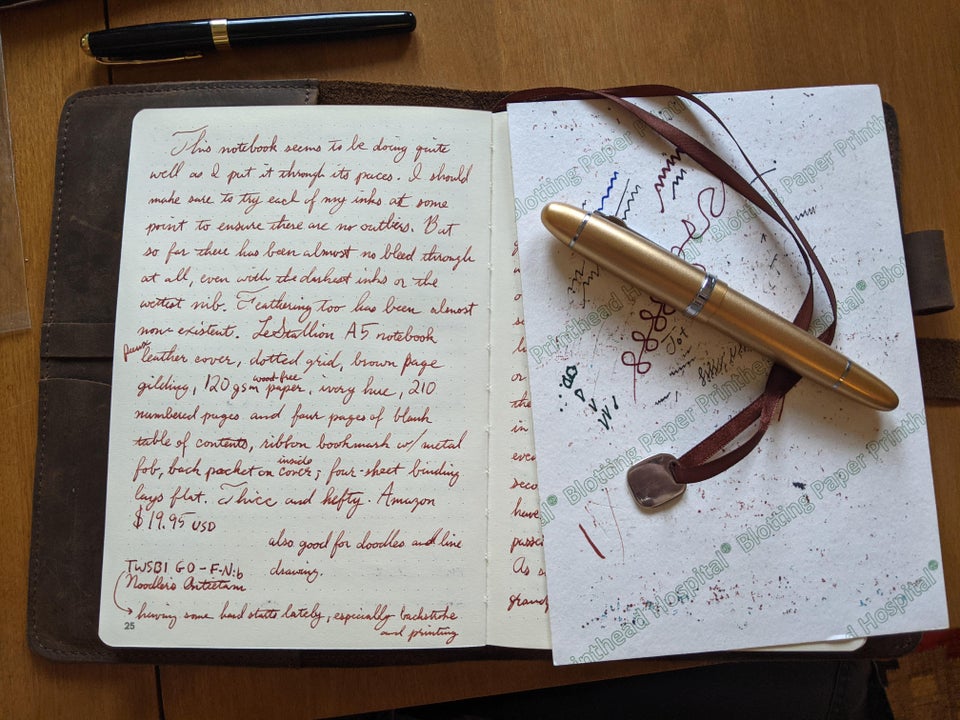 This notebook seems to be doing quite
well as I put it through its paces. I should
make sure to try each of my inks at some
point to ensure there are no outliers. But
so far there has been almost no bleed through
at all, even with the darkest inks or the
wettest nib. Feathering too has been almost
non-existent. LeStallion A5 notebook
leather cover, dotted grid, brown page
gilding, 120 gsm wood-free paper, ivory hue, 210
numbered pages and four pages of blank
table of contents, ribbon bookmark w/ metal
fob, back pocket on inside cover; four-sheet binding
lays flat. Thicc and hefty. Amazon
$19.95 USD
also good for doodles and line
drawing.
TWSBI GO - F-Nib
Noodlers Antietam
having some hard starts lately, especially backstroke
and printing
25
Blotting Paper Printhead Hospital® Blotting Paper Printhe
Printhead Hospital® Blotting Paper Printhead Hospital®
al® Blotting Paper Printhead Hospital® Blotting Paper Printh
inthead Hospital® Blotting Paper
Hospital®